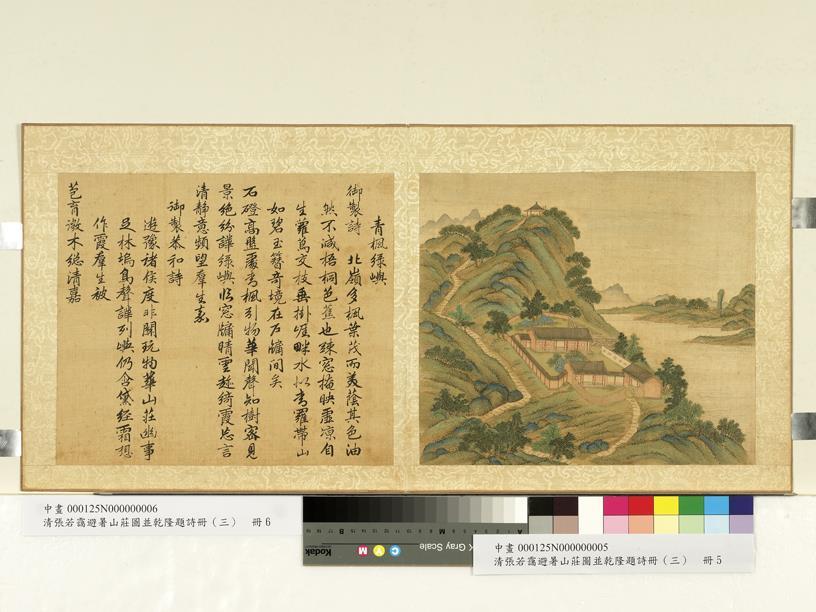 青楓綠嶼
御製詩 北嶺多楓葉茂而美蔭其色油
然不減梧桐芭蕉也疎窓掩映虛凉自
生蘿蔦交枝垂掛崖畔水似青羅帶山
如碧玉簪奇境在戶牖間矣
石磴高盤處青楓引物華聞聲知樹密見
景絕紛譁綠嶼臨窓牖晴雲趁綺霞忘言
清靜意頻望羣生嘉
御製恭和詩
遊豫諸侯度非關玩物華山莊幽事
足林塢鳥聲譁列嶼仍含黛經霜想
作霞羣生被
芭育激木總清嘉
中畫 000125N000000006
清張若靄避暑山莊圖並乾隆題詩冊（三） 冊6
Kodak
Gray Scale
C
Y
M
A
M
B
中畫 000125N000000005
清張若靄避暑山莊圖並乾隆題詩冊（三） 冊5